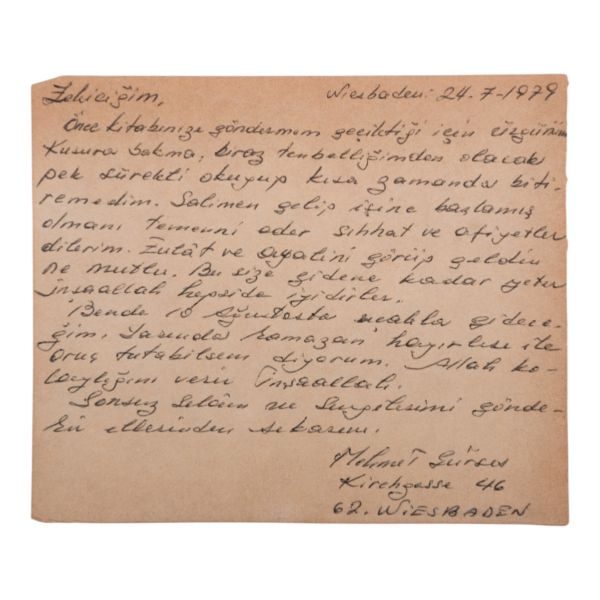 Zekiciğim, Wiesbaden: 24-7-1979
Önce kitabınıza göndermem geçiktiği için üzgünüm
Kusura bakma, biraz tenbelliğimden olacak
pek sürekli okuyup kısa zamanda biti-
remedim. Salimen gelip işine başlamış
olmanı temenni eder sıhhat ve afiyetler
dilerim. Evlât ve ayalini görüp geldin
ne mutlu. Bu size gidene kadar yeter
inşaallah hepside iyidirler.
Bende 10 Ağustosta gidece-
ğim, Yarında Ramazan hayırlısı ile
oruç tutabilsem diyorum. Allah ko-
laylığını verir İnşaallah.
Sonsuz Selâm ve Sevgilerimi gönde-
rir ellerinden sıkarım.
Mehmet Gürses
Kirchgasse 46
62. WIESBADEN